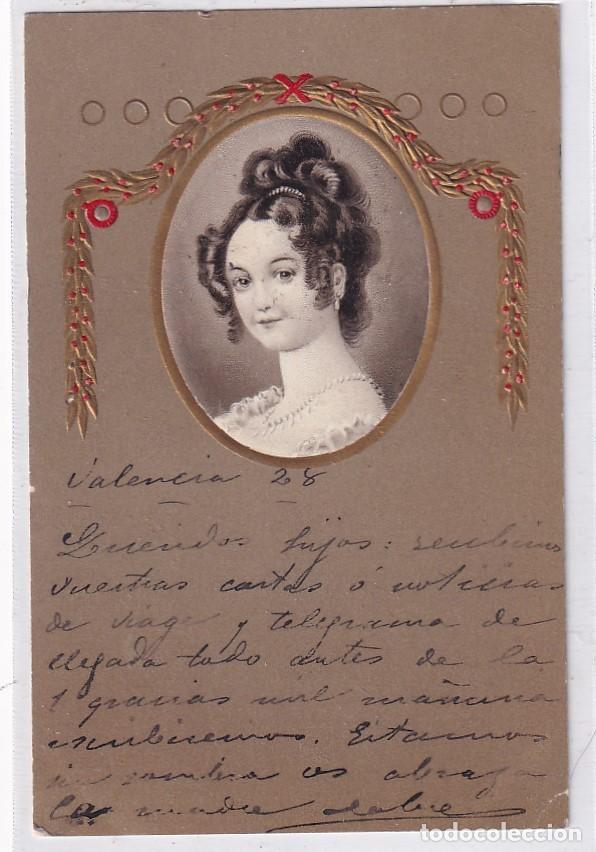 Valencia 28
Queridos hijos: recibimos
vuestras cartas ó noticias
de viage y telegrama de
llegada todo antes de la
1 gracias mil mañana
escribiremos. Estamos
sin os abraza
la madre
todocoleccion.net